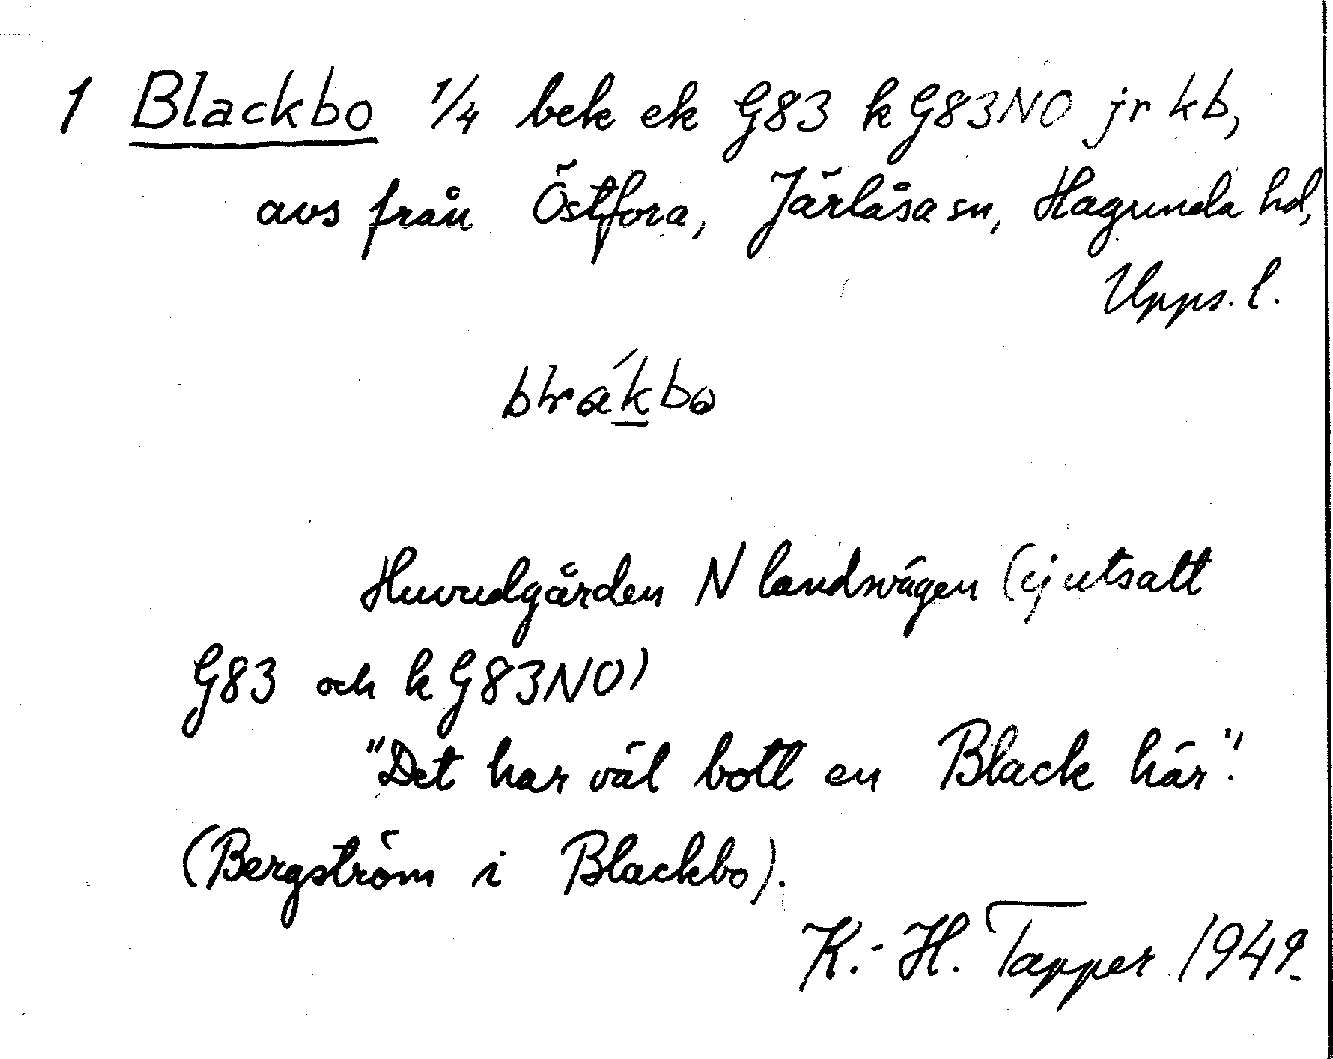 1 Blackbo 1/4 bek ek G83 k G83NO jr kb,
avs från Östfora, Järlåsa sn, Hagunda hd,
Upps. l.
Huvudgården N landsvägen (ej utsatt
G83 och k G83NO)
"Det har väl bott en Black här".
(Bergström i Blackbo).
K.-H. Tapper 1949.